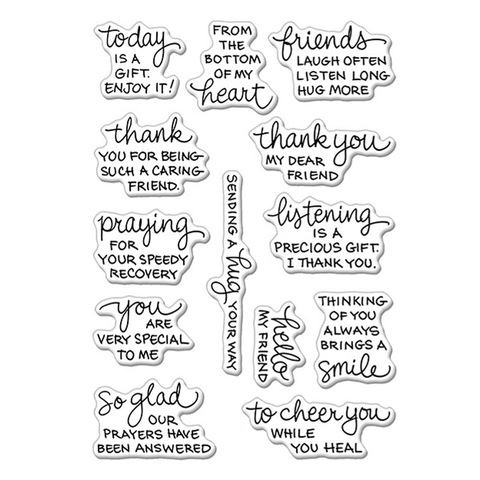 today
IS A
GIFT.
ENJOY IT!
FROM
THE
BOTTOM
OF MY
heart
friends
LAUGH OFTEN
LISTEN LONG
HUG MORE
thank
YOU FOR BEING
SUCH A CARING
FRIEND.
thank you
MY DEAR
FRIEND
praying
FOR
YOUR SPEEDY
RECOVERY
SENDING A hug YOUR WAY
listening
IS A
PRECIOUS GIFT.
I THANK YOU.
you
ARE
VERY SPECIAL
TO ME
hello
MY FRIEND
THINKING
OF YOU
ALWAYS
BRINGS A
smile
so glad
OUR
PRAYERS HAVE
BEEN ANSWERED
to cheer you
WHILE
YOU HEAL